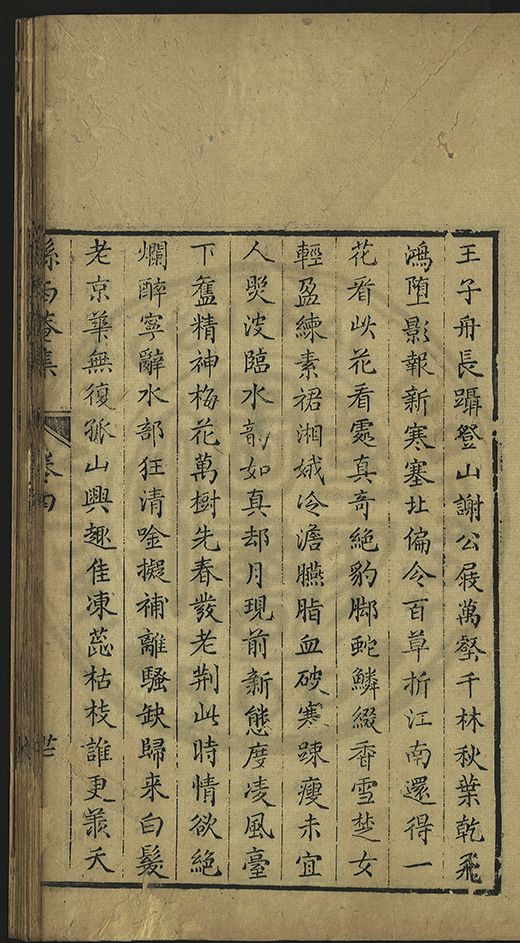 王子舟長躡登山謝公屐萬壑千林秋葉乾飛
鴻堕影報新寒塞北偏令百草折江南還得一
花看此花看處真奇絕豹脚蛇鱗綴香雪楚女
輕盈練素裙湘娥冷澹臙脂血破寒踈瘦未宜
人煚波臨水韵如真却月現前新態度凌風臺
下舊精神梅花萬樹先春發老荆此時情欲絕
爛醉寧辭水部狂清唫擬補離騷缺歸来白髮
老京華無復孤山興趣佳凍蕊枯枝誰更羨夭
集 卷四